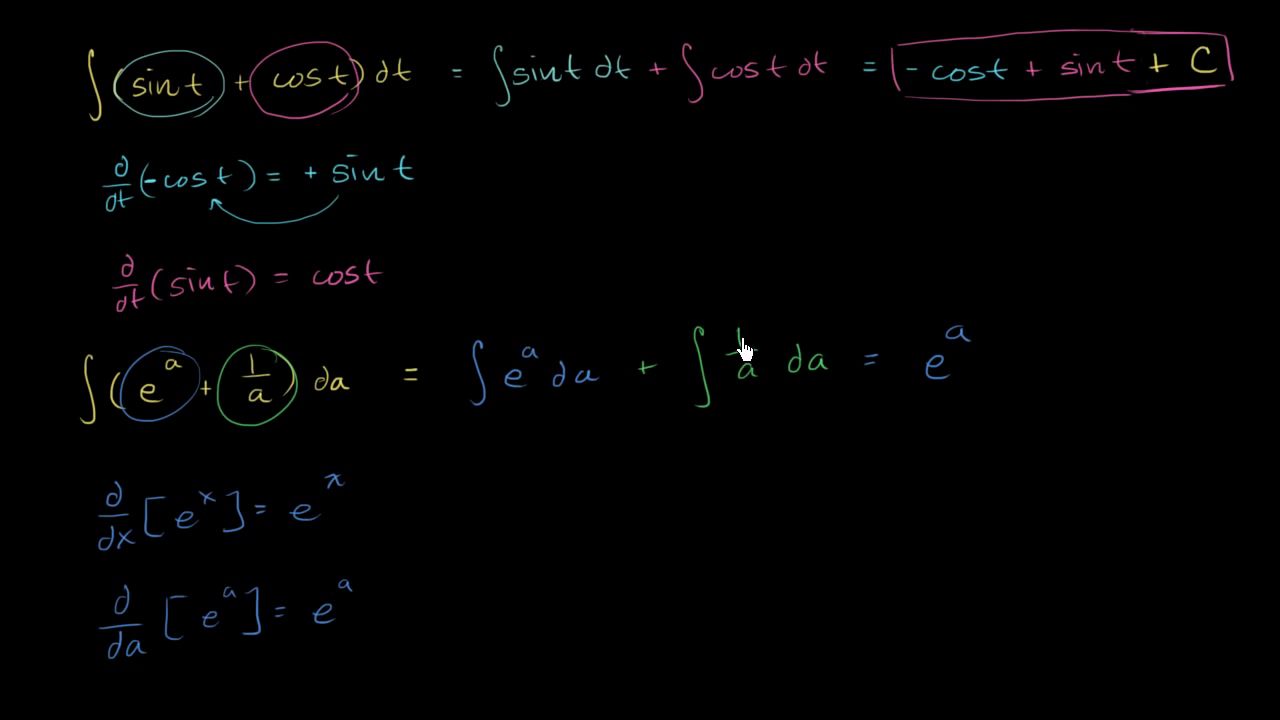 ∫(sin t + cos t) dt = ∫sin t dt + ∫cos t dt = - cos t + sin t + C
d/dt (-cos t) = + sin t
d/dt (sin t) = cos t
∫(e^a + 1/a) da = ∫e^a da + ∫1/a da = e^a
d/dx [e^x] = e^x
d/da [e^a] = e^a